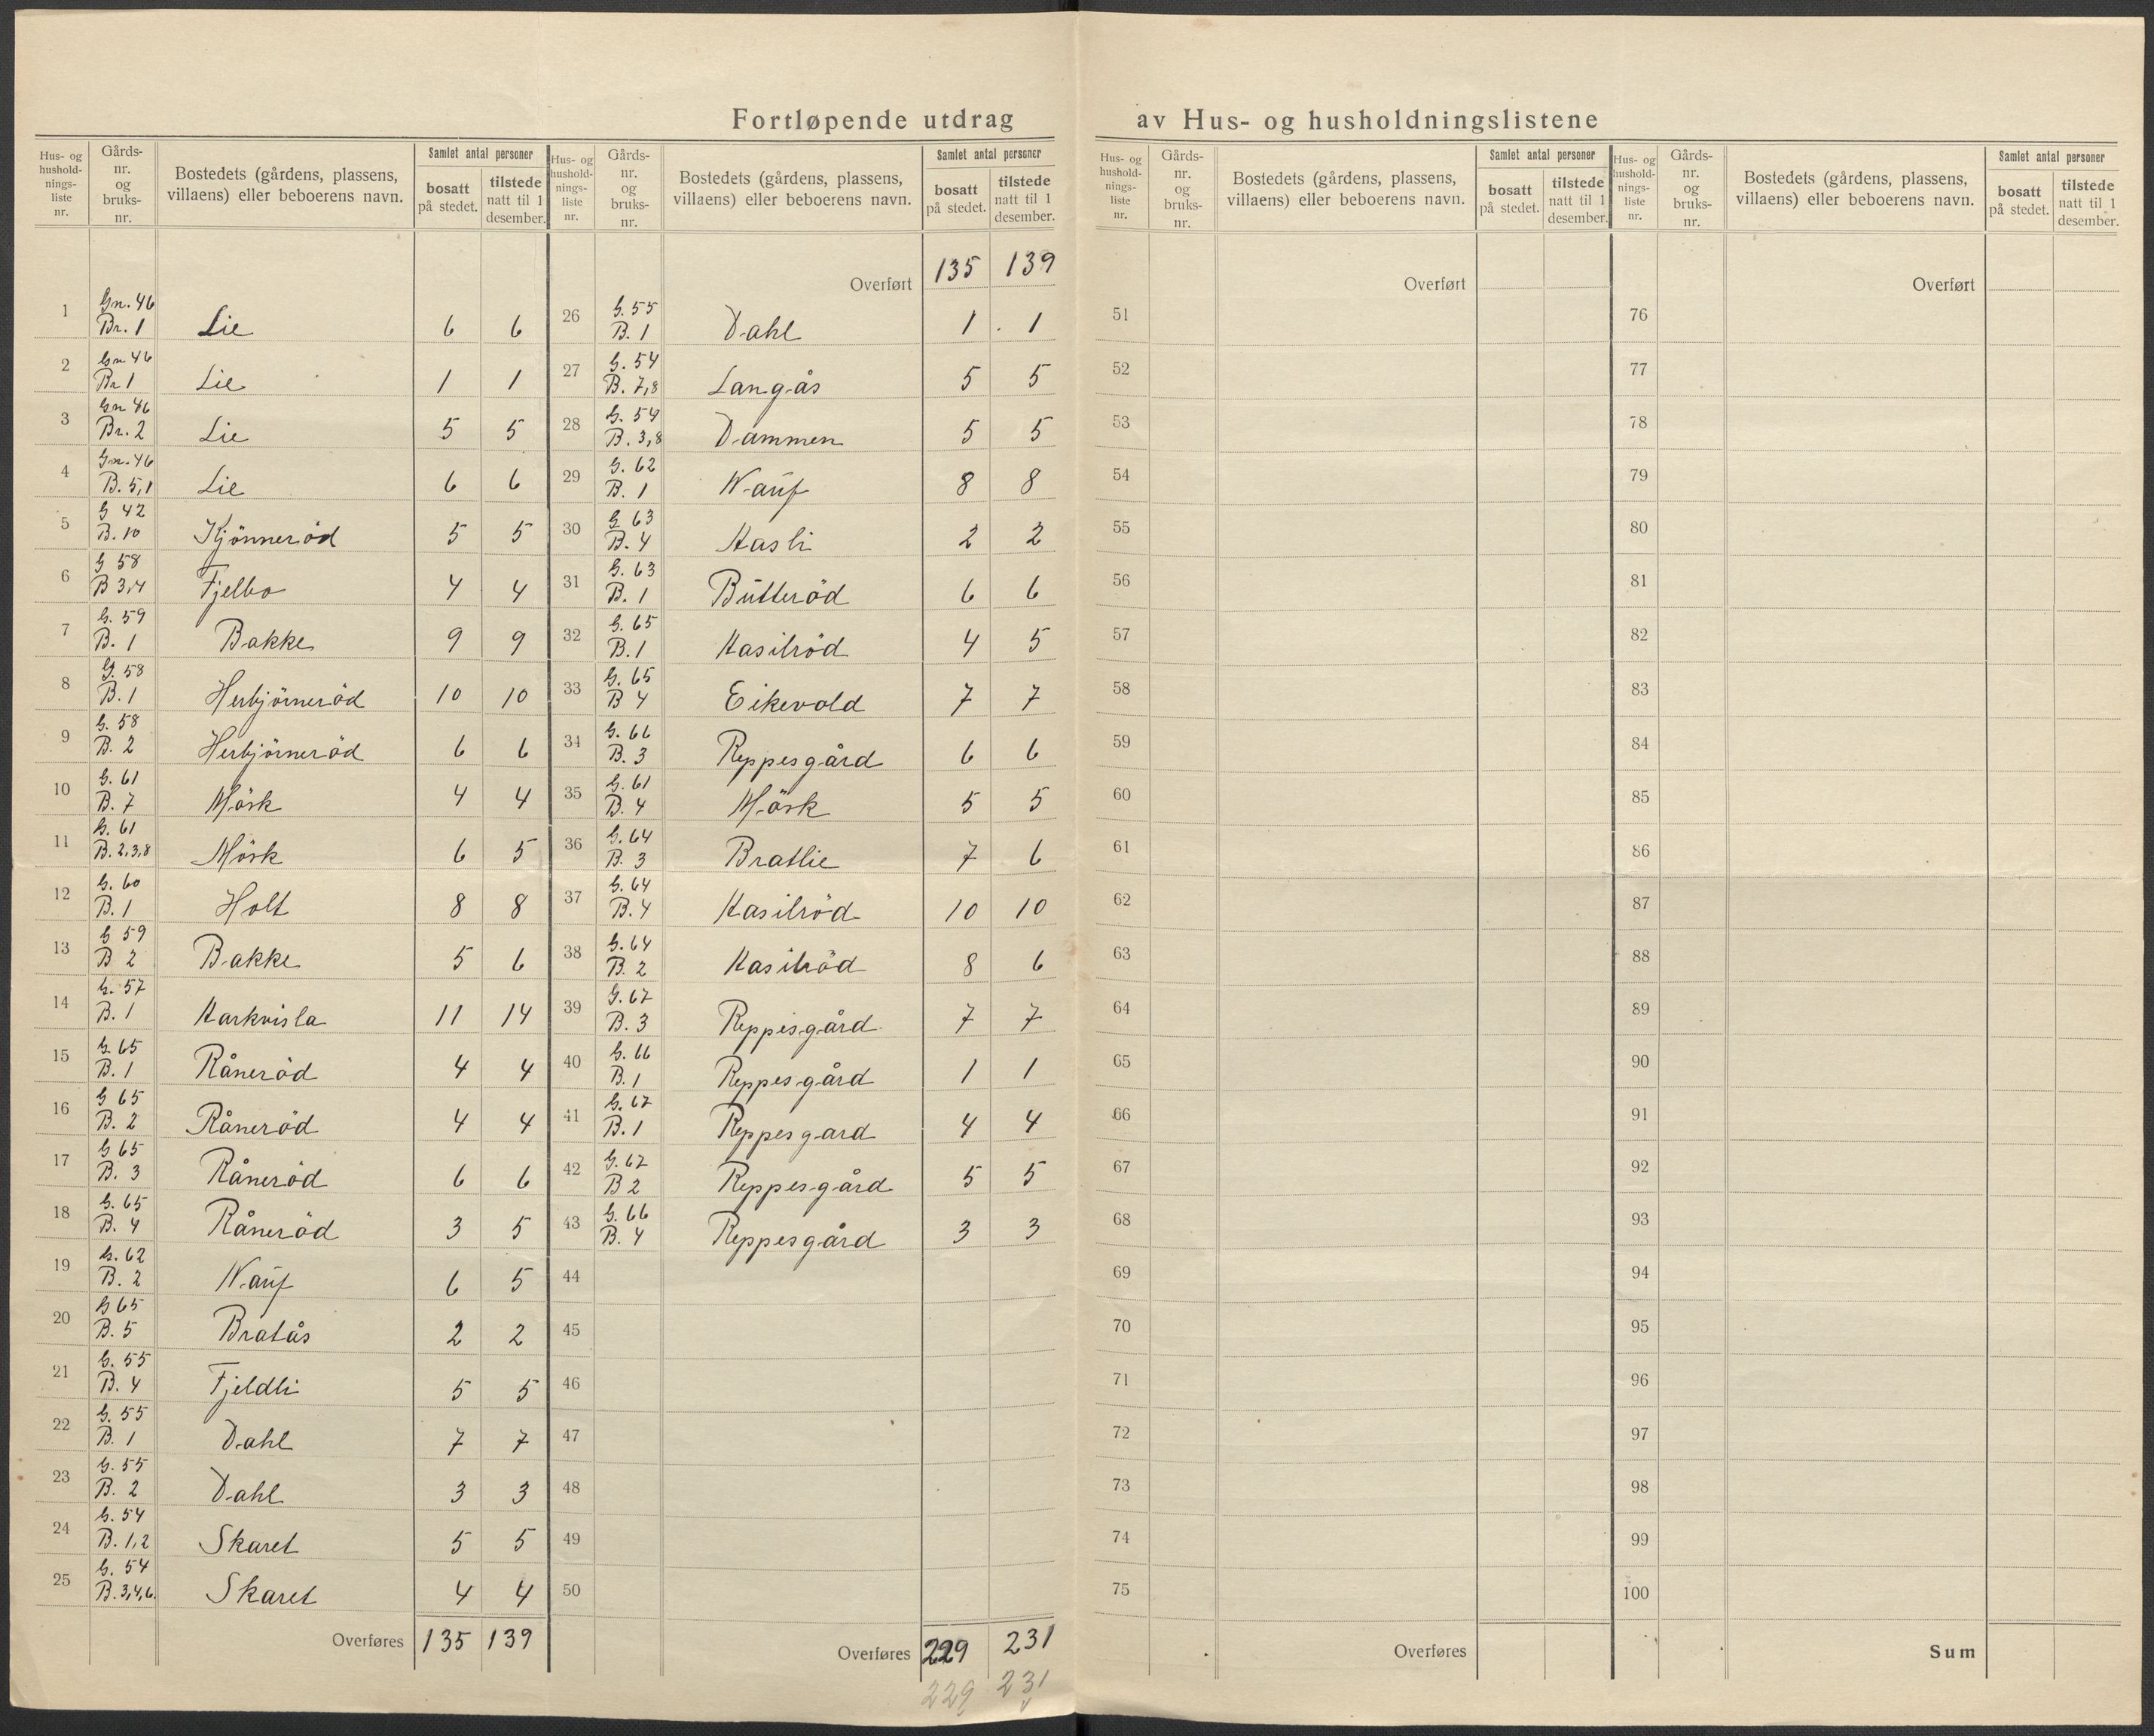 Fortløpende utdrag av Hus- og husholdningslistene
Hus- og hushold-nings-liste nr. Gårds-nr. og bruks-nr. Bostedets (gårdens, plassens, villaens) eller beboerens navn. Samlet antal personer bosatt på stedet. tilstede natt til 1 desember.
1 Gn. 46 Br. 1 Lie 6 6
2 Gn 46 Br 1 Lie 1 1
3 Gn 46 Br. 2 Lie 5 5
4 Gn. 46 B. 5,1 Lie 6 6
5 G 42 B. 10 Kjönneröd 5 5
6 G 58 B 3,4 Fjelbo 4 4
7 G. 59 B. 1 Bakke 9 9
8 G. 58 B. 1 Herbjörneröd 10 10
9 G. 58 B. 2 Herbjörneröd 6 6
10 G. 61 B. 7 Mörk 4 4
11 G. 61 B. 2,3,8 Mörk 6 5
12 G. 60 B. 1 Holt 8 8
13 G 59 B 2 Bakke 5 6
14 G. 57 B. 1 Harkvisla 11 14
15 G. 65 B. 1 Råneröd 4 4
16 G 65 B. 2 Råneröd 4 4
17 G 65 B. 3 Råneröd 6 6
18 G. 65 B. 4 Råneröd 3 5
19 G. 62 B. 2 Nauf 6 5
20 G 65 B. 5 Bratås 2 2
21 G. 55 B. 4 Fjeldli 5 5
22 G. 55 B. 1 Dahl 7 7
23 G. 55 B. 2 Dahl 3 3
24 G. 54 B. 1,2 Skaret 5 5
25 G. 54 B. 3,4,6. Skaret 4 4
Overføres 135 139
Hus- og hushold-nings-liste nr. Gårds-nr. og bruks-nr. Bostedets (gårdens, plassens, villaens) eller beboerens navn. Samlet antal personer bosatt på stedet. tilstede natt til 1 desember.
Overført 135 139
26 G. 55 B. 1 Dahl 1 1
27 G. 54 B. 7,8 Langås 5 5
28 G. 54 B. 3,8 Dammen 5 5
29 G. 62 B. 1 Nauf 8 8
30 G 63 B. 4 Hasli 2 2
31 G. 63 B. 1 Butteröd 6 6
32 G. 65 B. 1 Hasilröd 4 5
33 G. 65 B 4 Eikevold 7 7
34 G. 66 B. 3 Reppesgård 6 6
35 G. 61 B. 4 Mörk 5 5
36 G. 64 B. 3 Bratlie 7 6
37 G. 64 B. 4 Hasilröd 10 10
38 G. 64 B. 2 Hasilröd 8 6
39 G. 67 B. 3 Reppesgård 7 7
40 G. 66 B. 1 Reppesgård 1 1
41 G. 67 B. 1 Reppesgard 4 4
42 G. 67 B 2 Reppesgård 5 5
43 G. 66 B. 4 Reppesgård 3 3
44
45
46
47
48
49
50
Overføres 229 231
229 231
Hus- og hushold-nings-liste nr. Gårds-nr. og bruks-nr. Bostedets (gårdens, plassens, villaens) eller beboerens navn. Samlet antal personer bosatt på stedet. tilstede natt til 1 desember.
Overført
51
52
53
54
55
56
57
58
59
60
61
62
63
64
65
66
67
68
69
70
71
72
73
74
75
Overføres
Hus- og hushold-nings-liste nr. Gårds-nr. og bruks-nr. Bostedets (gårdens, plassens, villaens) eller beboerens navn. Samlet antal personer bosatt på stedet. tilstede natt til 1 desember.
Overført
76
77
78
79
80
81
82
83
84
85
86
87
88
89
90
91
92
93
94
95
96
97
98
99
100
Sum